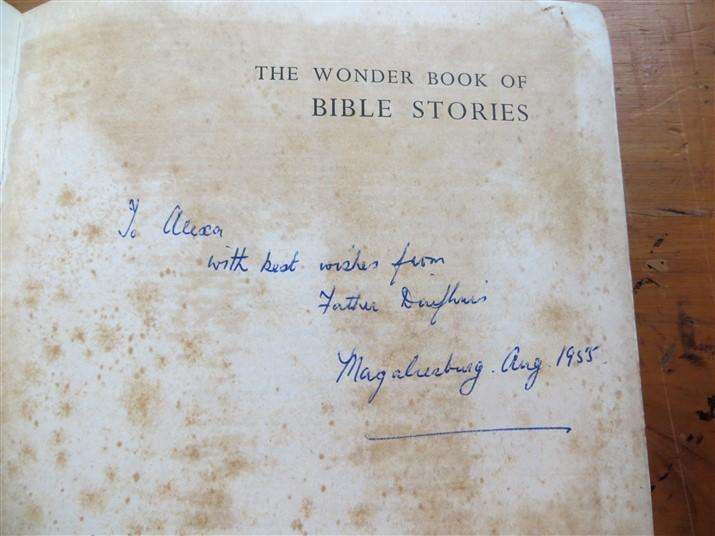 THE WONDER BOOK OF
BIBLE STORIES
To Alexa
with best wishes from
Father
Magaliesburg. Aug 1955.